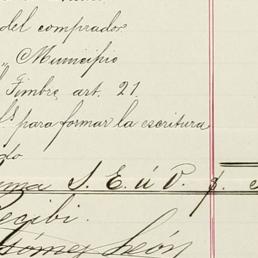 del comprador
" Municipio
" Timbre, art. 21.
para formar la escritura
S. E. ú O. $.
Recibi.
Gómez León